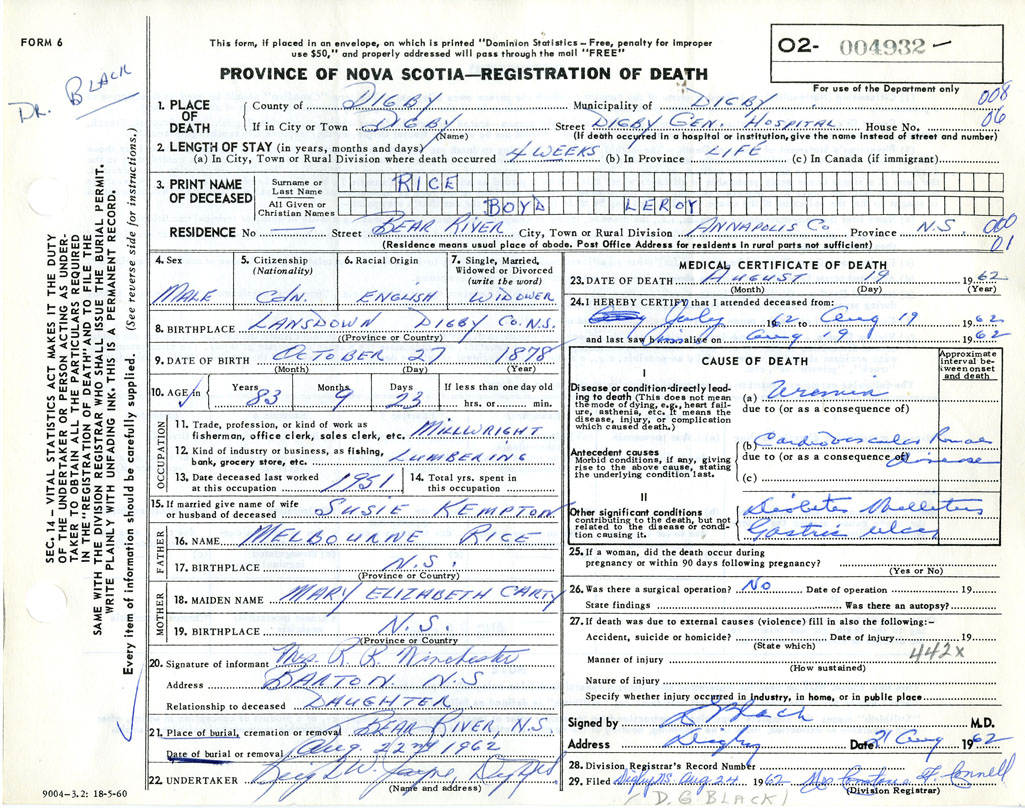 FORM 6
This form, if placed in an envelope, on which is printed "Dominion Statistics – Free, penalty for improper
use $50," and properly addressed will pass through the mail "FREE"
02- 004932
PROVINCE OF NOVA SCOTIA—REGISTRATION OF DEATH
For use of the Department only
DR. BLACK
008
06
1. PLACE OF DEATH
County of DIGBY Municipality of DIGBY
If in City or Town DIGBY Street DIGBY GEN. HOSPITAL House No.
(Name) (If death occurred in a hospital or institution, give the name instead of street and number)
2. LENGTH OF STAY (in years, months and days)
(a) In City, Town or Rural Division where death occurred 4 WEEKS (b) In Province LIFE (c) In Canada (if immigrant)
3. PRINT NAME OF DECEASED
Surname or Last Name RICE
All Given or Christian Names BOYD LEROY
RESIDENCE No — Street BEAR RIVER City, Town or Rural Division ANNAPOLIS CO Province N.S.
(Residence means usual place of abode. Post Office Address for residents in rural parts not sufficient)
000
01
4. Sex MALE
5. Citizenship (Nationality) CDN.
6. Racial Origin ENGLISH
7. Single, Married, Widowed or Divorced (write the word) WIDOWER
8. BIRTHPLACE LANSDOWN DIGBY CO. N.S.
(Province or Country)
9. DATE OF BIRTH OCTOBER 27 1878
(Month) (Day) (Year)
10. AGE in Years 83 Months 9 Days 23 If less than one day old hrs. or min.
OCCUPATION
11. Trade, profession, or kind of work as
fisherman, office clerk, sales clerk, etc. MILLWRIGHT
12. Kind of industry or business, as fishing,
bank, grocery store, etc. LUMBERING
13. Date deceased last worked at this occupation 1951
14. Total yrs. spent in this occupation
15. If married give name of wife
or husband of deceased SUSIE KEMPTON
FATHER
16. NAME MELBOURNE RICE
17. BIRTHPLACE N.S.
(Province or Country)
MOTHER
18. MAIDEN NAME MARY ELIZABETH CARTY
19. BIRTHPLACE N.S.
(Province or Country
20. Signature of informant Mrs. R. R. Winchester
Address BARTON, N.S
Relationship to deceased DAUGHTER
21. Place of burial, cremation or removal BEAR RIVER, N.S.
Date of burial or removal Aug. 22nd 1962
22. UNDERTAKER W. Jayne, Digby
(Name and address)
9004-3.2: 18-5-60
MEDICAL CERTIFICATE OF DEATH
23. DATE OF DEATH AUGUST 19 1962
(Month) (Day) (Year)
24. I HEREBY CERTIFY that I attended deceased from:
July 1962 to Aug 19 1962
and last saw him alive on Aug 19 1962
CAUSE OF DEATH
Approximate interval between onset and death
I
Disease or condition directly leading to death (This does not mean the mode of dying, e.g., heart failure, asthenia, etc. It means the disease, injury, or complication which caused death.)
(a) Uremia
due to (or as a consequence of)
Antecedent causes
Morbid conditions, if any, giving rise to the above cause, stating the underlying condition last.
(b) Cardiovascular Renal
due to (or as a consequence of) disease
(c)
II
Other significant conditions
contributing to the death, but not related to the disease or condition causing it.
Diabetes Mellitus
Gastric ulcer
25. If a woman, did the death occur during
pregnancy or within 90 days following pregnancy?
(Yes or No)
26. Was there a surgical operation? NO Date of operation 19
State findings Was there an autopsy?
27. If death was due to external causes (violence) fill in also the following:–
Accident, suicide or homicide? Date of injury 19
(State which)
442x
Manner of injury
(How sustained)
Nature of injury
Specify whether injury occurred in industry, in home, or in public place
Signed by Black M.D.
Address Digby Date 21 Aug 1962
28. Division Registrar's Record Number
29. Filed Digby NS. Aug. 24 1962 Mrs. Constance Connell
(Division Registrar)
(D. G. BLACK)
SEC. 14 – VITAL STATISTICS ACT MAKES IT THE DUTY
OF THE UNDERTAKER OR PERSON ACTING AS UNDER-
TAKER TO OBTAIN ALL THE PARTICULARS REQUIRED
IN THE "REGISTRATION OF DEATH" AND TO FILE THE
SAME WITH THE DIVISION REGISTRAR WHO SHALL ISSUE THE BURIAL PERMIT.
WRITE PLAINLY WITH UNFADING INK. THIS IS A PERMANENT RECORD.
Every item of information should be carefully supplied. (See reverse side for instructions.)